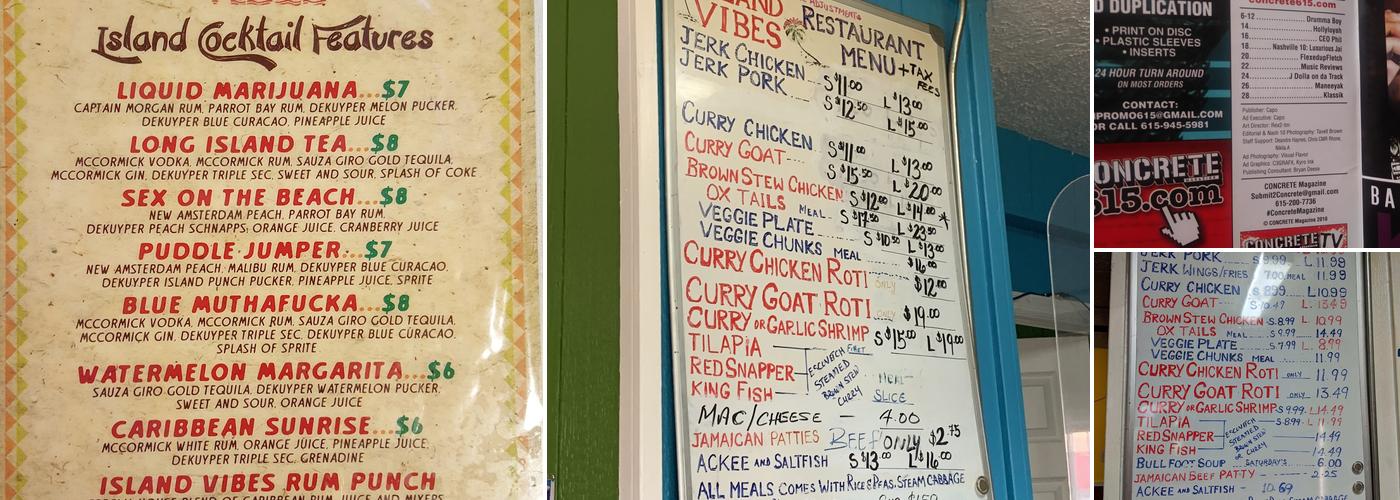 Island Cocktail Features
LIQUID MARIJUANA...$7
CAPTAIN MORGAN RUM, PARROT BAY RUM, DEKUYPER MELON PUCKER,
DEKUYPER BLUE CURACAO, PINEAPPLE JUICE
LONG ISLAND TEA...$8
MCCORMICK VODKA, MCCORMICK RUM, SAUZA GIRO GOLD TEQUILA,
MCCORMICK GIN, DEKUYPER TRIPLE SEC, SWEET AND SOUR, SPLASH OF COKE
SEX ON THE BEACH...$8
NEW AMSTERDAM PEACH, PARROT BAY RUM,
DEKUYPER PEACH SCHNAPPS, ORANGE JUICE, CRANBERRY JUICE
PUDDLE JUMPER...$7
NEW AMSTERDAM PEACH, MALIBU RUM, DEKUYPER BLUE CURACAO,
DEKUYPER ISLAND PUNCH PUCKER, PINEAPPLE JUICE, SPRITE
BLUE MUTHAFUCKA...$8
MCCORMICK VODKA, MCCORMICK RUM, SAUZA GIRO GOLD TEQUILA,
MCCORMICK GIN, DEKUYPER TRIPLE SEC, DEKUYPER BLUE CURACAO,
SPLASH OF SPRITE
WATERMELON MARGARITA...$6
SAUZA GIRO GOLD TEQUILA, DEKUYPER WATERMELON PUCKER,
SWEET AND SOUR, ORANGE JUICE
CARIBBEAN SUNRISE...$6
MCCORMICK WHITE RUM, ORANGE JUICE, PINEAPPLE JUICE,
DEKUYPER TRIPLE SEC, GRENADINE
ISLAND VIBES RUM PUNCH
VIBES
RESTAURANT
MENU +TAX
FEES
JERK CHICKEN S $11.00 L $13.00
JERK PORK S $12.50 L $15.00
CURRY CHICKEN S $11.00 L $13.00
CURRY GOAT S $15.50 L $20.00
BROWN STEW CHICKEN S $12.00 L $14.00
OX TAILS MEAL S $17.50 L $23.50
VEGGIE PLATE S $10.50 L $13.00
VEGGIE CHUNKS MEAL $16.00
CURRY CHICKEN ROTI ONLY $12.00
CURRY GOAT ROTI ONLY $19.00
CURRY OR GARLIC SHRIMP S $15.00 L $19.00
TILAPIA
RED SNAPPER
KING FISH
ESCOVITCH
STEAMED
BROWN STEW
CURRY
MEAL
SLICE
MAC/CHEESE - 4.00
JAMAICAN PATTIES BEEF ONLY $2.75
ACKEE AND SALTFISH S $13.00 L $16.00
ALL MEALS COMES WITH RICE & PEAS, STEAM CABBAGE
D DUPLICATION
• PRINT ON DISC
• PLASTIC SLEEVES
• INSERTS
24 HOUR TURN AROUND
ON MOST ORDERS
CONTACT:
PROMO615@GMAIL.COM
OR CALL 615-945-5981
ONCRETE
615.com
concrete615.com
6-12 Drumma Boy
14 Hollyloyah
16 CEO Phil
18 Nashville 10: Luxurious Jai
20 FlexedupFletch
22 Music Reviews
24 J Dolla on da Track
26 Maneeyak
28 Klassik
Publisher: Capo
Ad Executive: Capo
Editorial & Nash 10 Photography: Tavell Brown
Staff Support: Deandra Haynes, Chris CMR Rhone,
Nikita A
Ad Photography: Visual Flavor
Ad Graphics: C3GRAFX, Kyro Ink
Publishing Consultant: Bryan Deese
CONCRETE Magazine
Submit2Concrete@gmail.com
615-200-7736
#ConcreteMagazine
© CONCRETE Magazine 2018
CONCRETE TV
BA
JERK PORK S 9.99 L 11.99
JERK WINGS/FRIES 7.00 MEAL 11.99
CURRY CHICKEN S 8.99 L 10.99
CURRY GOAT S 10.49 L 13.49
BROWN STEW CHICKEN S 8.99 L 10.99
OX TAILS MEAL S 9.99 L 14.49
VEGGIE PLATE S 7.99 L 8.99
VEGGIE CHUNKS MEAL 11.99
CURRY CHICKEN ROTI ONLY 11.99
CURRY GOAT ROTI ONLY 13.49
CURRY OR GARLIC SHRIMP S 9.99 L 14.49
TILAPIA S 8.99 L 11.99
RED SNAPPER 14.49
KING FISH 14.49
ESCOVITCH
STEAMED
BROWN STEW
OR CURRY
BULL FOOT SOUP SATURDAY'S 6.00
JAMAICAN BEEF PATTY 2.25
ACKEE AND SALTFISH - 10.69